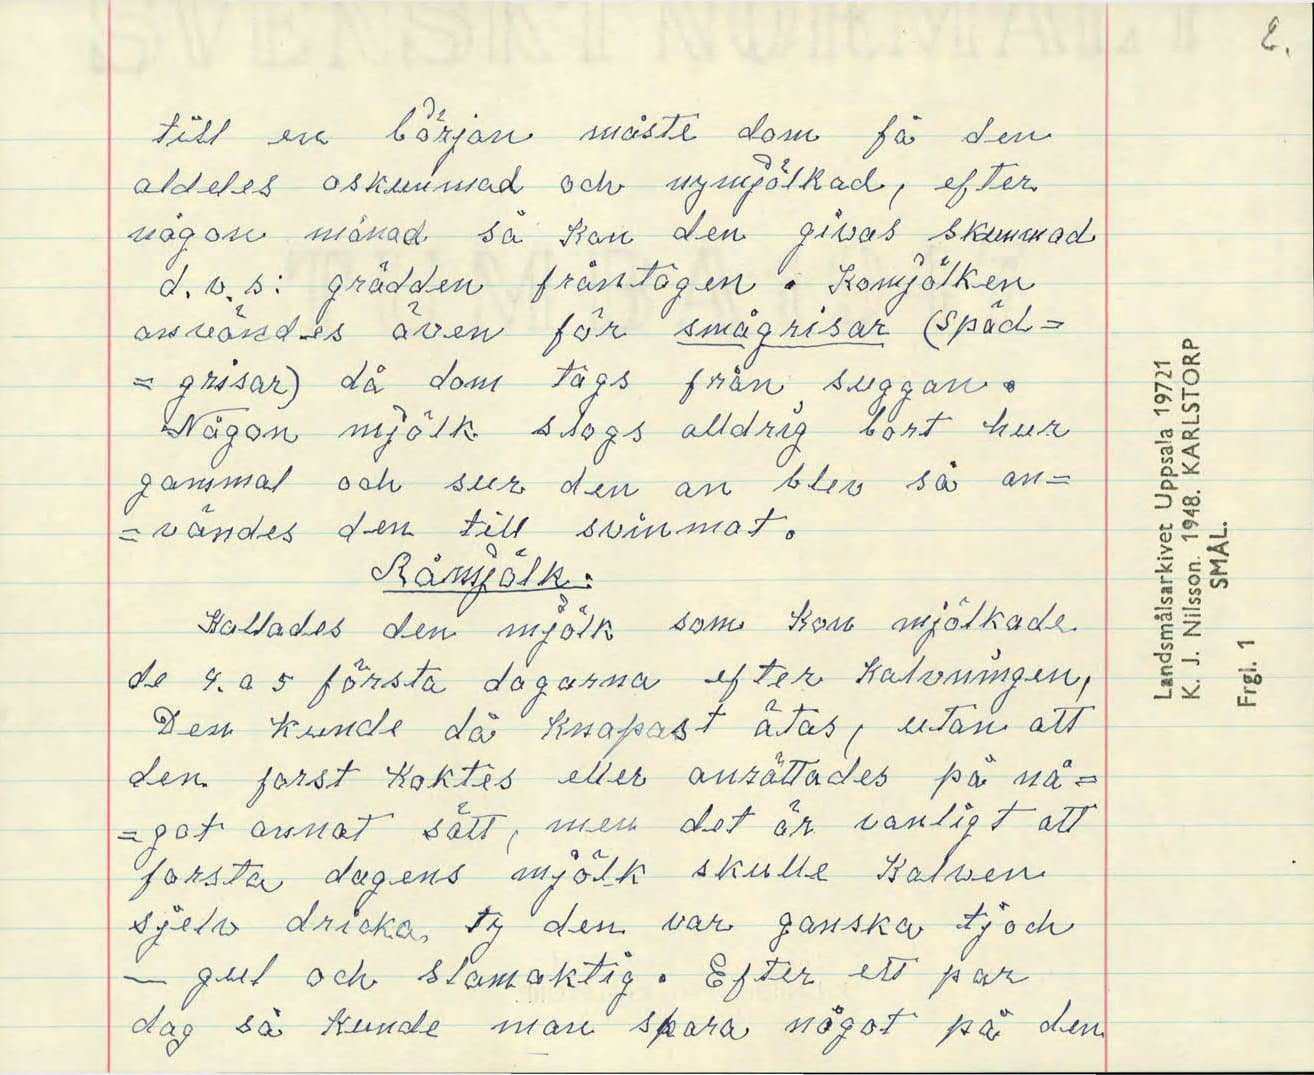 2.
till en början måste dom få den
aldeles oskummad och nymjölkad, efter
någon månad så kan den givas skummad
d.v.s: grädden fråntagen. Komjölken
användes även för smågrisar (späd=
=grisar) då dom tags från suggan.
Någon mjölk slogs alldrig bort hur
gammal och sur den än blev så an=
=vändes den till svinmat.
Råmjölk.
Kallades den mjölk som kon mjölkade
de 4. a 5 första dagarna efter kalvningen,
Den kunde då knapast ätas, utan att
den forst koktes eller anrättades på nå=
=got annat sätt, men det är vanligt att
forsta dagens mjölk skulle kalven
sjelv dricka, ty den var ganska tjoch
— gul och slamaktig. Efter ett par
dag så kunde man spara något på den
Landsmålsarkivet Uppsala 19721
K. J. Nilsson. 1948. KARLSTORP
SMÅL.
Frgl. 1